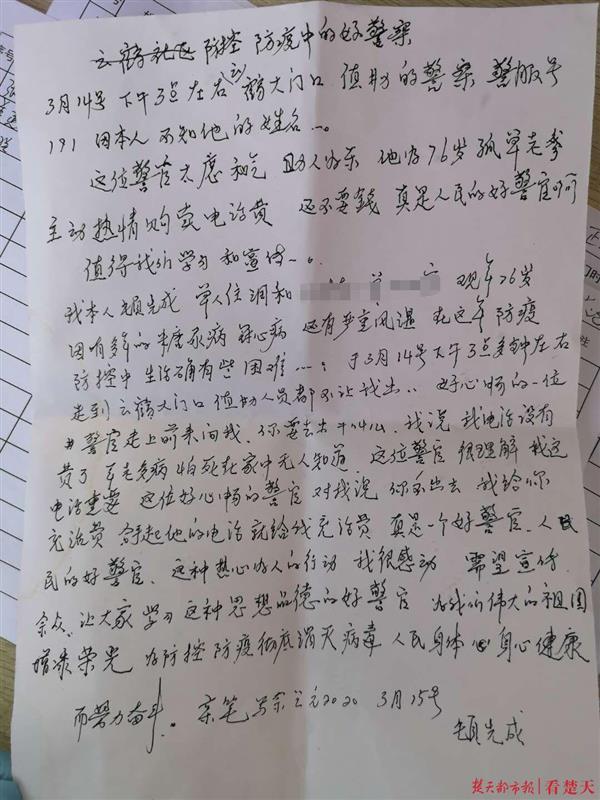 云鹤社区 防控 防疫中的好警察
3月14号 下午3点左右 云鹤大门口 值班的警察 警服号
191 因本人不知他的姓名…。
这位警官太度和气 助人为乐 他为76岁孤单老拳
主动热情购卖电话费 还不要錢 真是人民的好警官啊
值得我们学习和宣传…。
我本人顿先成 单人住调和 现年76岁
因有多年的糖尿病 冠心病 还有严重风湿 在这年防疫
防控中 生活确有些困难…: 于3月14号下午3点多钟左右
走到云鹤大门口 值班人员都不让我出.. 好心肠的一位
警官走上前来问我.你要出去干什么.我说 我电话没有
费了 年老多病 怕死在家中无人知道. 这位警官 很理解 我这
电话重要 这位好心肠的警官 对我说 你不出去 我给你
充话费 拿起他的电话 就给我充话费 真是一个好警官.人民
民的好警官. 这种热心为人的行动 我很感动 需望宣传.
让大家学习这种思想品德的好警官 为我们伟大的祖国
增添荣光 为防控防疫彻底消灭病毒 人民身体心身心健康
而劳力奋斗. 亲笔 2020 3月15号
顿先成
楚天都市报 看楚天